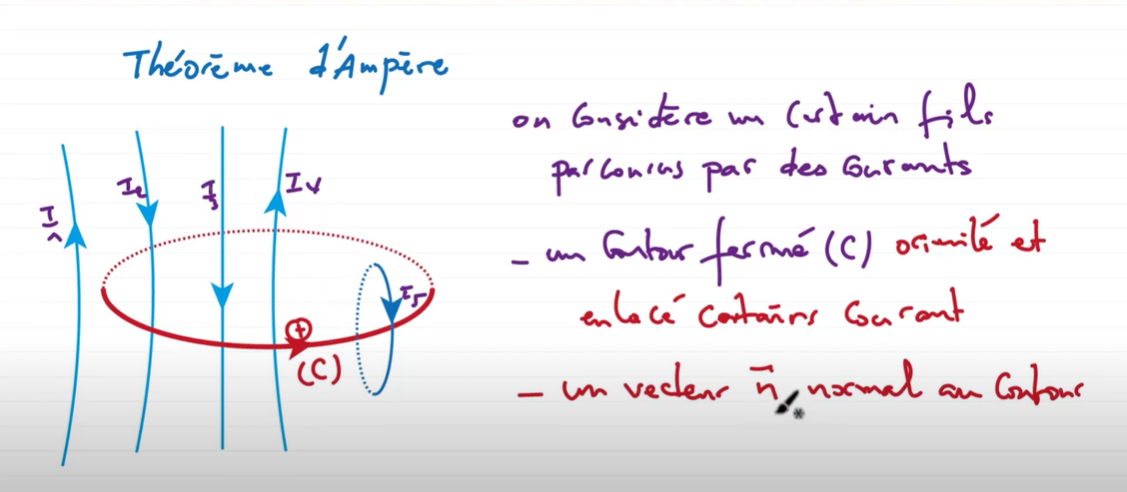 Théorème d'Ampère
on Considère un Certain fils
parcourus par des Courants
- un Contour fermé (C) orienté et
enlacé certains Courant
- un vecteur n normal au Contour
I1
I2
I3
I4
I5
+
(C)